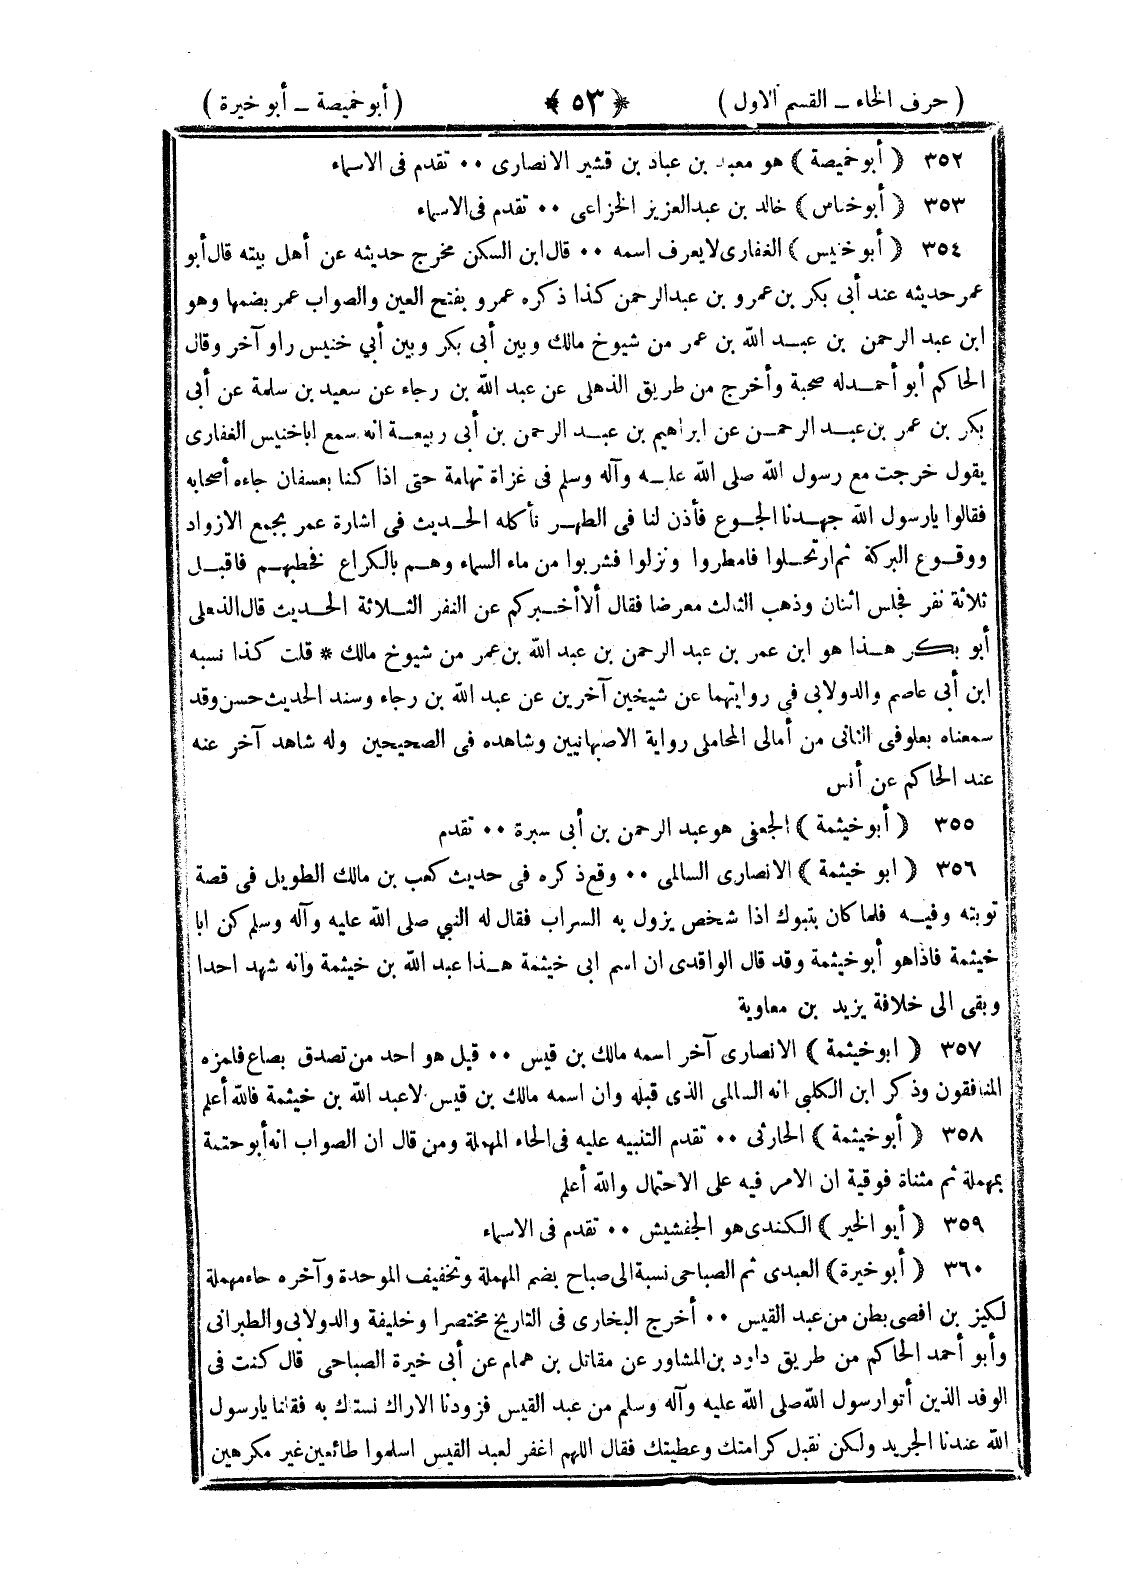 ( حرف الخاء ــ القسم الاول ) ﴿ ٥٣ ﴾ ( أبو خميصة ــ أبو خيرة )
٣٥٢ ( أبوخميصة ) هو معبد بن عباد بن قشير الانصارى ٠٠ تقدم فى الاسماء
٣٥٣ ( أبوخناس ) خالد بن عبدالعزيز الخزاعى ٠٠ تقدم فى الاسماء
٣٥٤ ( أبوخنيس ) الغفارى لا يعرف اسمه ٠٠ قال ابن السكن مخرج حديثه عن أهل بيته قال أبو
عمر حديثه عند أبى بكر بن عمرو بن عبدالرحمن كذا ذكره عمرو بفتح العين والصواب عمر بضمها وهو
ابن عبد الرحمن بن عبد الله بن عمر من شيوخ مالك وبين أبى بكر وبين أبي خنيس راو آخر وقال
الحاكم أبو أحمد له صحبة وأخرج من طريق الذهلى عن عبد الله بن رجاء عن سعيد بن سلمة عن أبى
بكر بن عمر بن عبد الرحمن عن ابراهيم بن عبد الرحمن بن أبى ربيعة انه سمع اباخنيس الغفارى
يقول خرجت مع رسول الله صلى الله عليه وآله وسلم فى غزاة تهامة حتى اذا كنا بعسفان جاءه أصحابه
فقالوا يارسول الله جهدنا الجوع فأذن لنا فى الظهر نأكله الحديث فى اشارة عمر بجمع الازواد
ووقوع البركة ثم ارتحلوا فامطروا ونزلوا فشربوا من ماء السماء وهم بالكراع فخطبهم فاقبل
ثلاثة نفر فجلس اثنان وذهب الثالث معرضا فقال ألا أخبركم عن النفر الثلاثة الحديث قال الذهلى
أبو بكر هذا هو ابن عمر بن عبد الرحمن بن عبد الله بن عمر من شيوخ مالك * قلت كذا نسبه
ابن أبى عاصم والدولابى فى روايتهما عن شيخين آخرين عن عبد الله بن رجاء وسند الحديث حسن وقد
سمعناه بعلو فى الثانى من أمالى المحاملى رواية الاصبهانيين وشاهده فى الصحيحين وله شاهد آخر عنه
عند الحاكم عن أنس
٣٥٥ ( أبو خيثمة ) الجعفى هو عبد الرحمن بن أبى سبرة ٠٠ تقدم
٣٥٦ ( ابو خيثمة ) الانصارى السالمى ٠٠ وقع ذكره فى حديث كعب بن مالك الطويل فى قصة
توبته وفيه فلما كان بتبوك اذا شخص يزول به السراب فقال له النبي صلى الله عليه وآله وسلم كن ابا
خيثمة فاذاهو أبوخيثمة وقد قال الواقدى ان اسم ابى خيثمة هذا عبد الله بن خيثمة وانه شهد احدا
وبقى الى خلافة يزيد بن معاوية
٣٥٧ ( ابوخيثمة ) الانصارى آخر اسمه مالك بن قيس ٠٠ قيل هو احد من تصدق بصاع فلمزه
المنافقون وذكر ابن الكلبى انه السالمى الذى قبله وان اسمه مالك بن قيس لا عبد الله بن خيثمة فالله أعلم
٣٥٨ ( أبوخيثمة ) الحارثى ٠٠ تقدم التنبيه عليه فى الحاء المهملة ومن قال ان الصواب انه أبو حتمة
بمهملة ثم مثناة فوقية ان الامر فيه على الاحتمال والله أعلم
٣٥٩ ( أبو الخير ) الكندى هو الجفشيش ٠٠ تقدم فى الاسماء
٣٦٠ ( أبوخيرة ) العبدى ثم الصباحى نسبة الى صباح بضم المهملة وتخفيف الموحدة وآخره حاء مهملة
لكيز بن افصى بطن من عبد القيس ٠٠ أخرج البخارى فى التاريخ مختصرا وخليفة والدولابى والطبرانى
وأبو أحمد الحاكم من طريق داود بن المشاور عن مقاتل بن همام عن أبى خيرة الصباحى قال كنت فى
الوفد الذين أتوا رسول الله صلى الله عليه وآله وسلم من عبد القيس فزودنا الاراك نستاك به فقلنا يارسول
الله عندنا الجريد ولكن نقبل كرامتك وعطيتك فقال اللهم اغفر لعبد القيس اسلموا طائعين غير مكرهين